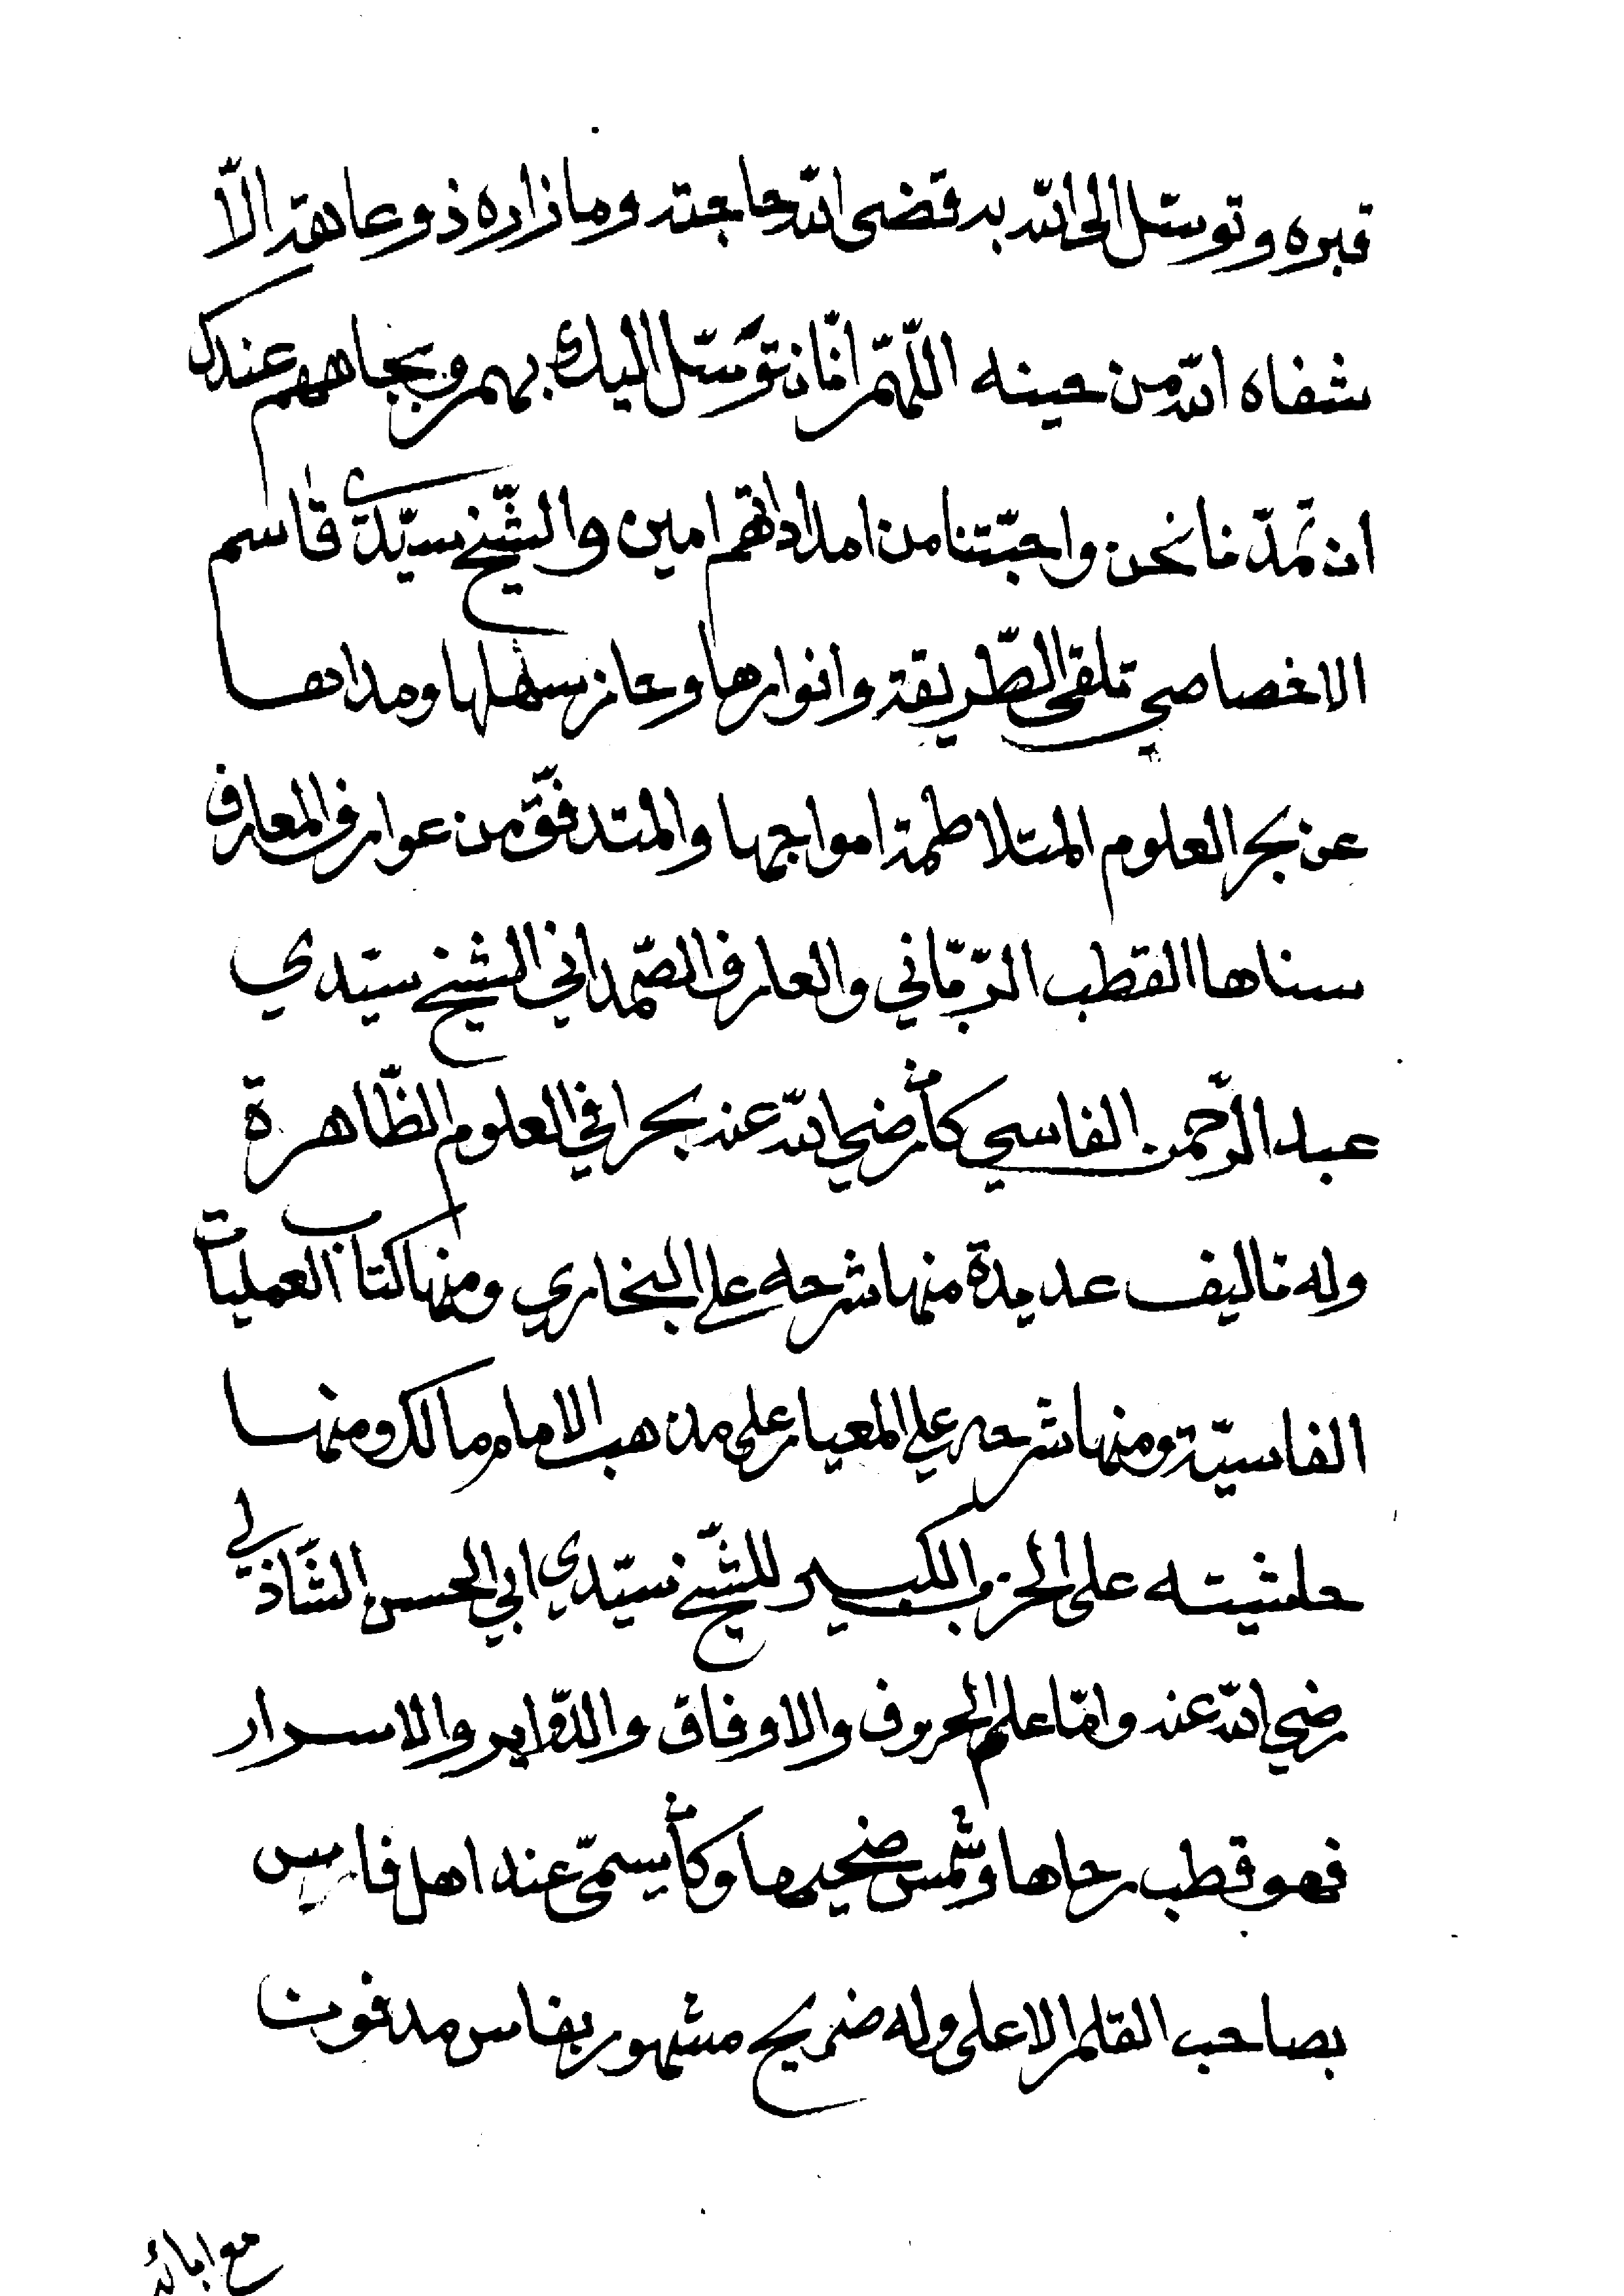 قبره وتوسّل الى الله به قضى الله حاجته وما زاره ذو عاهة الّا
شفاه الله من حينه اللّهمّ انّا نتوسّل اليك بهم وبجاههم عندك
ان تمدّنا نحن واحبّتنا من امداداتهم امين والشّيخ سيّدي قاسم
الاخصاصي تلقى الطّريقة وانوارها وحاز سهلها ومداها
عن بحر العلوم المتلاطمة امواجها والمتدفّق من عوارف المعارف
سناها القطب الرّبّاني والعارف الصّمداني الشيخ سيّدي
عبد الرّحمن الفاسي كان رضي الله عنه بحرا في العلوم الظّاهرة
وله تاليف عديدة منها شرحه على البخاري ومنها كتاب العمليات
الفاسيّة ومنها شرحه على المعيار على مذهب الامام مالك ومنها
حاشيته على الحزب الكبير للشّيخ سيّدي ابي الحسن الشّاذلي
رضي الله عنه وامّا علم الحروف والاوفاق والدّواير والاسرار
فهو قطب رحاها وشمس ضحيها وكان يسمّى عند اهل فارس
بصاحب القلم الاعلى وله ضريح مشهور بفاس مدفون
مع ابائه